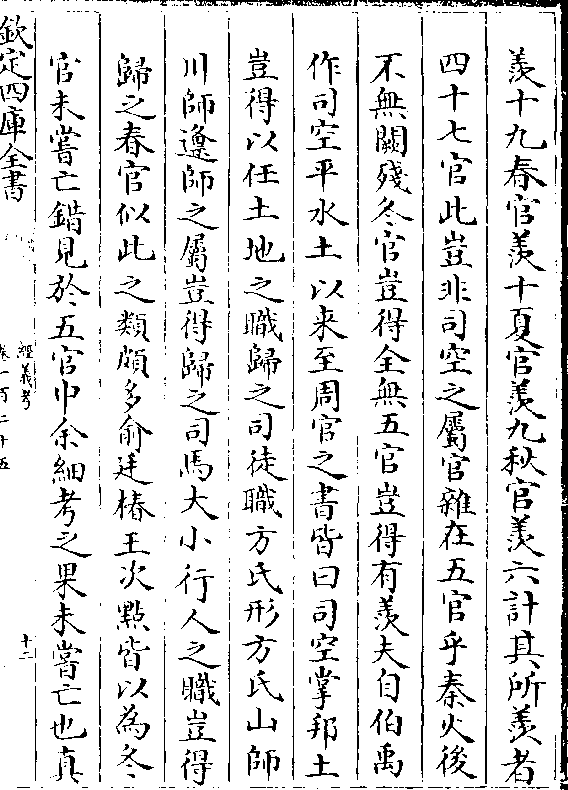 羨十九春官羨十夏官羨九秋官羨六計其所羨者
四十七官此豈非司空之屬官雜在五官乎秦火後
不無闕殘冬官豈得全無五官豈得有羨夫自伯禹
作司空平水土以来至周官之書皆曰司空掌邦土
豈得以任土地之職歸之司徒職方氏形方氏山師
川師邍師之屬豈得歸之司馬大小行人之職豈得
歸之春官似此之類頗多俞廷椿王次點皆以為冬
官未嘗亡錯見於五官中余細考之果未嘗亡也真
欽定四庫全書
經義考
卷一百二十五
十二